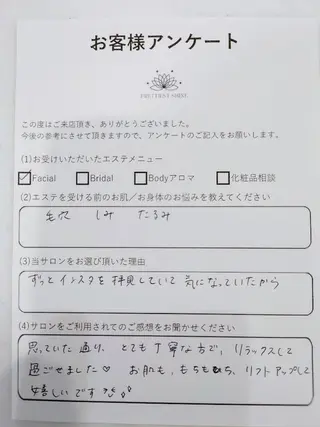 お客様アンケート
PRETTIEST SHINE
この度はご来店頂き、ありがとうございました。
今後の参考にさせて頂きますので、アンケートのご記入をお願いします。
(1)お受けいただいたエステメニュー
Facial Bridal Bodyアロマ 化粧品相談
(2)エステを受ける前のお肌/お身体のお悩みを教えてください
毛穴 しみ たるみ
(3)当サロンをお選び頂いた理由
ずっとインスタを拝見していて気になっていたから
(4)サロンをご利用されてのご感想をお聞かせください
思っていた通り、とても丁寧な方で、リラックスして
過ごせました♡ お肌も、もちもち、リフトアップして
嬉しいです